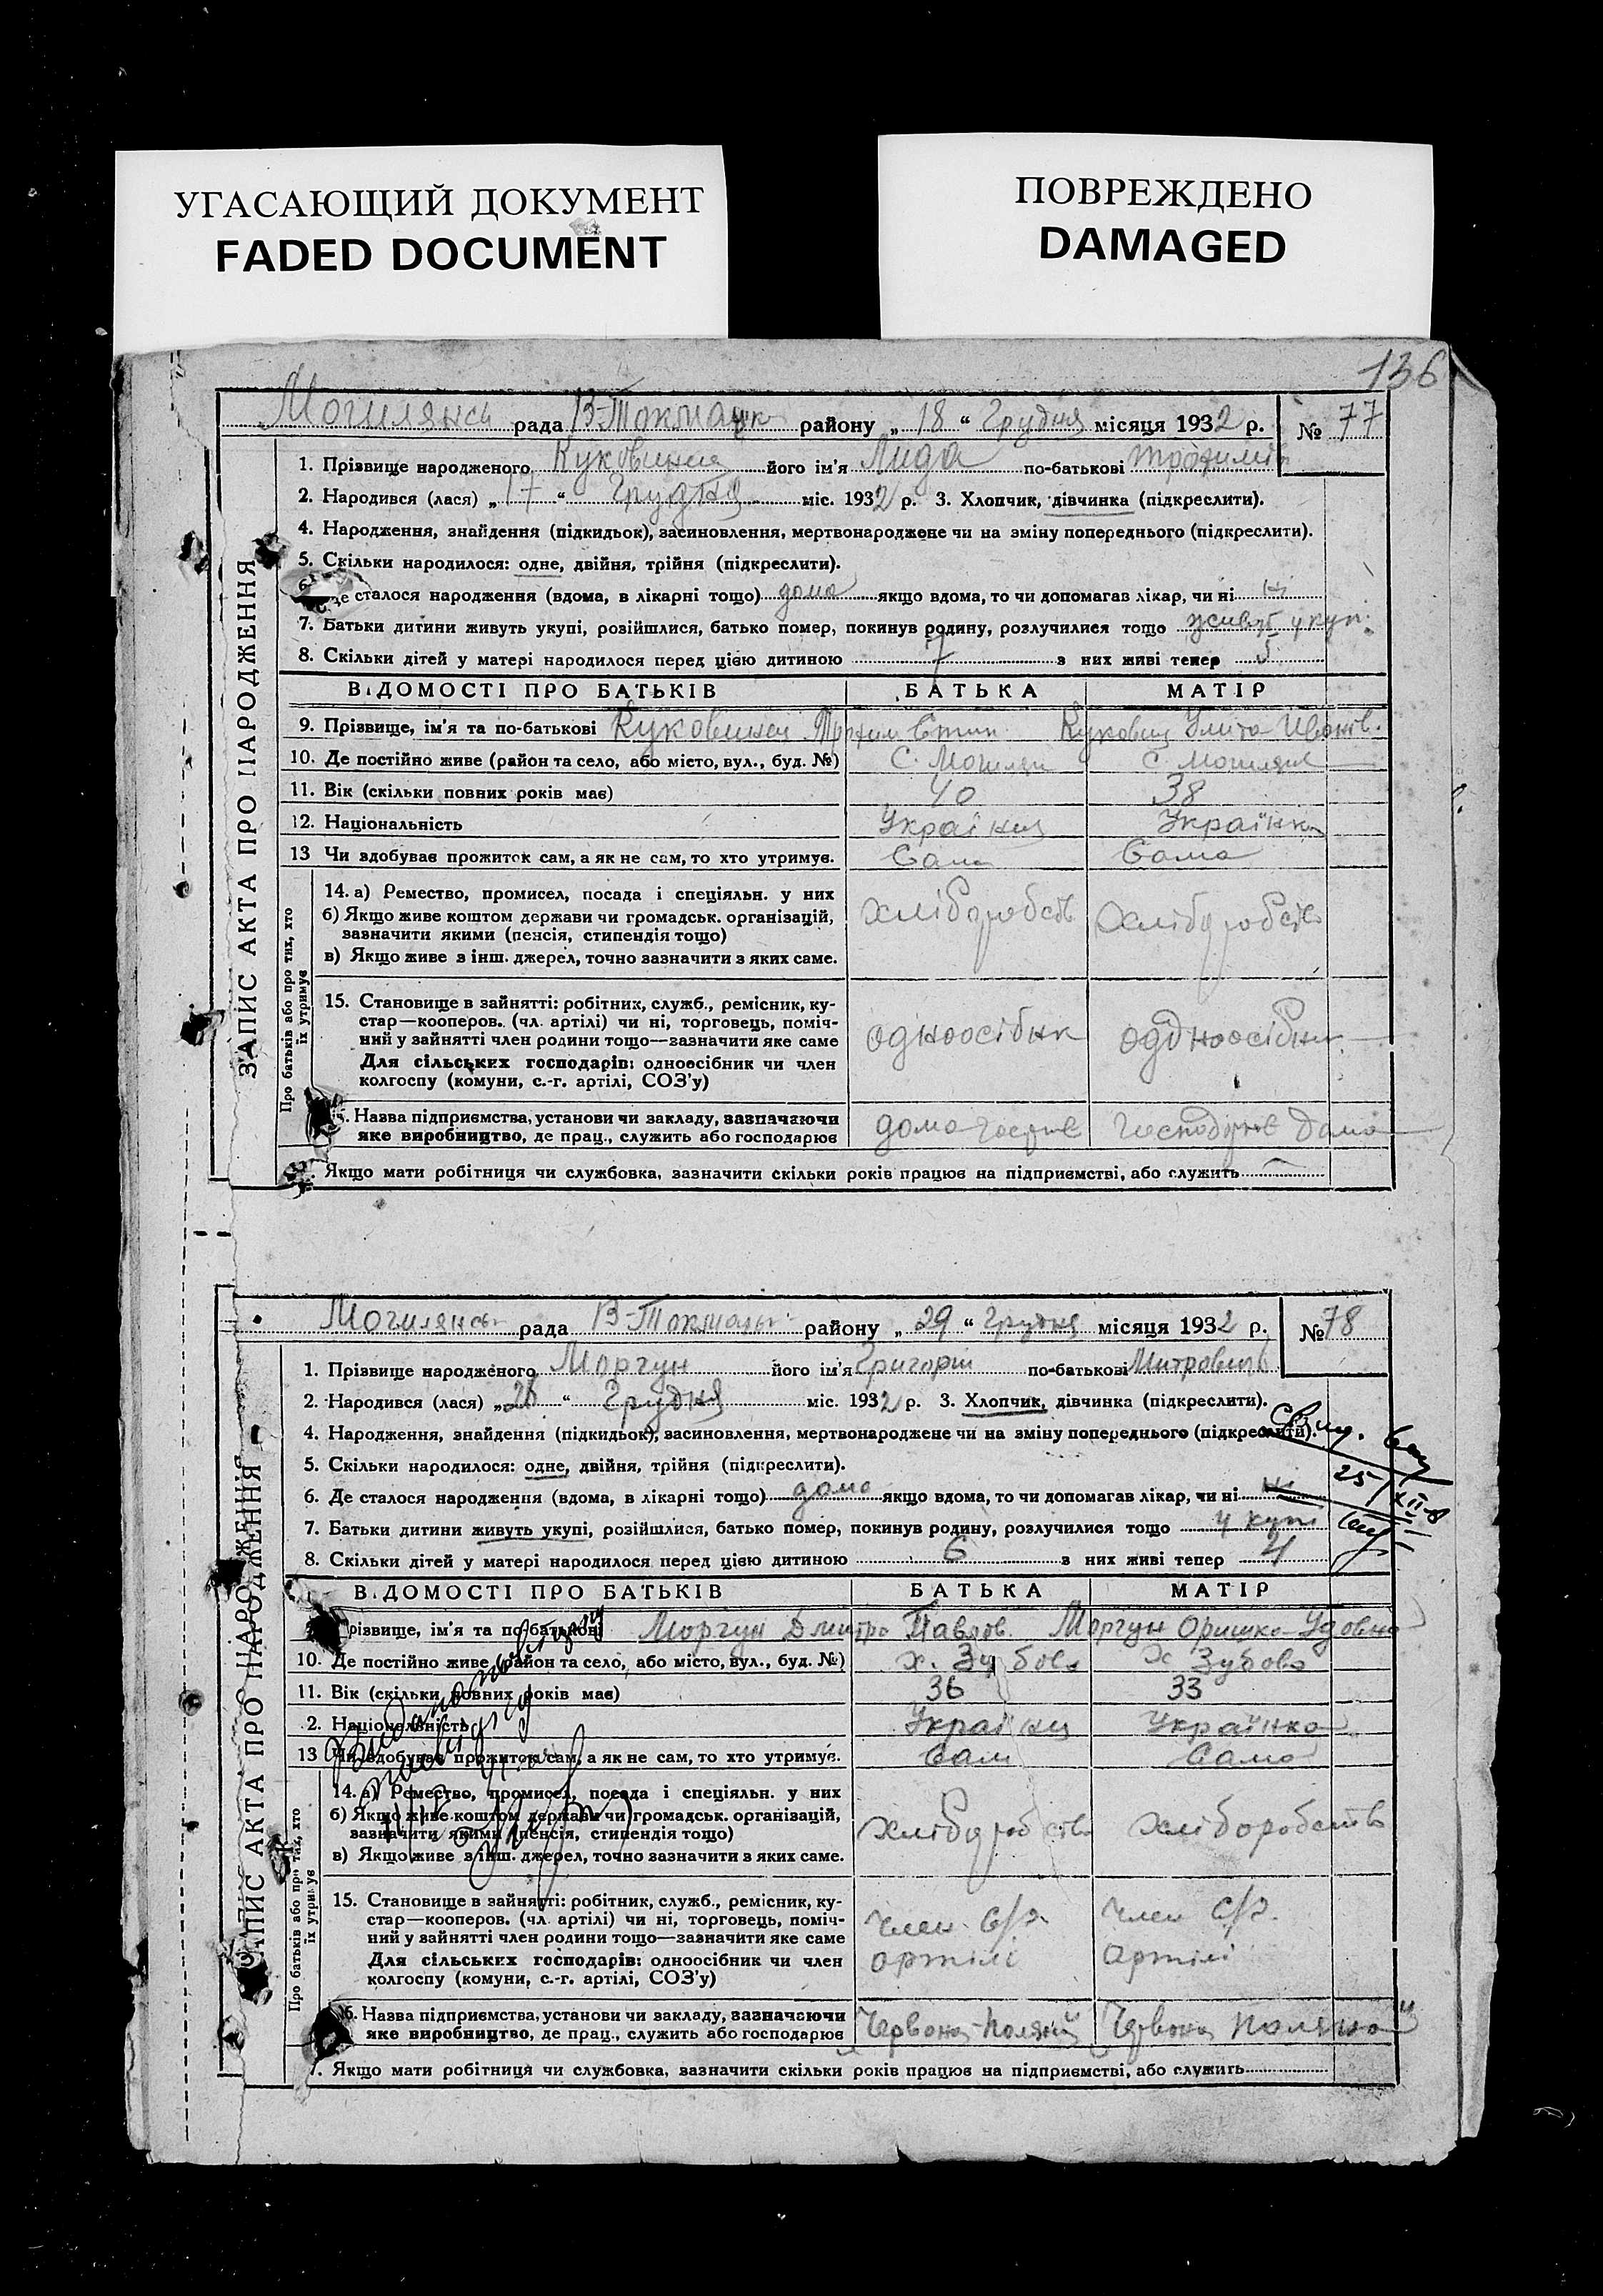 УГАСАЮЩИЙ ДОКУМЕНТ
FADED DOCUMENT
ПОВРЕЖДЕНО
DAMAGED
136
Могилянськ рада В-Токмацьк району „ 18 “ Грудня місяця 1932 р. № 77
1. Прізвище народженого Куковинец його ім'я Лида по-батькові
2. Народився (лася) „ 17 “ Грудня міс. 1932 р. 3. Хлопчик, дівчинка (підкреслити).
4. Народження, знайдення (підкидьок), засиновлення, мертвонароджене чи на зміну попереднього (підкреслити).
5. Скільки народилося: одне, двійня, трійня (підкреслити).
де сталося народження (вдома, в лікарні тощо) дома якщо вдома, то чи допомагав лікар, чи ні ні
7. Батьки дитини живуть укупі, розійшлися, батько помер, покинув родину, розлучилися тощо живуть укупі
8. Скільки дітей у матері народилося перед цією дитиною 7 з них живі тепер 5
ЗАПИС АКТА ПРО НАРОДЖЕННЯ
ВІДОМОСТІ ПРО БАТЬКІВ БАТЬКА МАТІР
9. Прізвище, ім'я та по-батькові Улита
10. Де постійно живе (район та село, або місто, вул., буд. №) С. С.
11. Вік (скільки повних років має) 40 38
12. Національність Українец Українка
13 Чи здобував прожиток сам, а як не сам, то хто утримує. Сам Сама
Про батьків або про тих, хто їх утримує
14. а) Ремество, промисел, посада і спеціяльн. у них
б) Якщо живе коштом держави чи громадськ. організацій,
зазначити якими (пенсія, стипендія тощо)
в) Якщо живе з інш. джерел, точно зазначити з яких саме.
хліборобств хліборобств
15. Становище в зайнятті: робітник, служб., ремісник, ку-
стар—кооперов. (чл. артілі) чи ні, торговець, поміч-
ний у зайнятті член родини тощо—зазначити яке саме
одноосібнк одноосібнк
Для сільських господарів: одноосібник чи член
колгоспу (комуни, с.-г. артілі, СОЗ'у)
Назва підприємства, установи чи закладу, зазначаючи
яке виробництво, де прац., служить або господарює
дома дома
Якщо мати робітниця чи службовка, зазначити скільки років працює на підприємстві, або служить
Могилянськ рада В-Токмацьк району „ 29 “ Грудня місяця 1932 р. № 78
1. Прізвище народженого Моргун його ім'я Григорій по-батькові Митрович
2. Народився (лася) „ 28 “ Грудня міс. 1932 р. 3. Хлопчик, дівчинка (підкреслити).
4. Народження, знайдення (підкидьок), засиновлення, мертвонароджене чи на зміну попереднього (підкреслити).
5. Скільки народилося: одне, двійня, трійня (підкреслити).
6. Де сталося народження (вдома, в лікарні тощо) дома якщо вдома, то чи допомагав лікар, чи ні ні
7. Батьки дитини живуть укупі, розійшлися, батько помер, покинув родину, розлучилися тощо укупі
8. Скільки дітей у матері народилося перед цією дитиною 6 з них живі тепер 4
25/XII
ЗАПИС АКТА ПРО НАРОДЖЕННЯ
ВІДОМОСТІ ПРО БАТЬКІВ БАТЬКА МАТІР
різвище, ім'я та по-батькові Моргун Дмитро Павлов. Моргун Оришка
10. Де постійно живе (район та село, або місто, вул., буд. №) х. Зубово х Зубово
11. Вік (скільки повних років має) 36 33
2. Національність Українец Українка
13 Чи здобував прожиток сам, а як не сам, то хто утримує. Сам Сама
Про батьків або про тих, хто їх утримує
14. а) Ремество, промисел, посада і спеціяльн. у них
б) Якщо живе коштом держави чи громадськ. організацій,
зазначити якими (пенсія, стипендія тощо)
в) Якщо живе з інш. джерел, точно зазначити з яких саме.
хліборобство хліборобств
15. Становище в зайнятті: робітник, служб., ремісник, ку-
стар—кооперов. (чл. артілі) чи ні, торговець, поміч-
ний у зайнятті член родини тощо—зазначити яке саме
Член с/г. Член с/г.
артілі артілі
Для сільських господарів: одноосібник чи член
колгоспу (комуни, с.-г. артілі, СОЗ'у)
6. Назва підприємства, установи чи закладу, зазначаючи
яке виробництво, де прац., служить або господарює
Червона Червона
7. Якщо мати робітниця чи службовка, зазначити скільки років працює на підприємстві, або служить